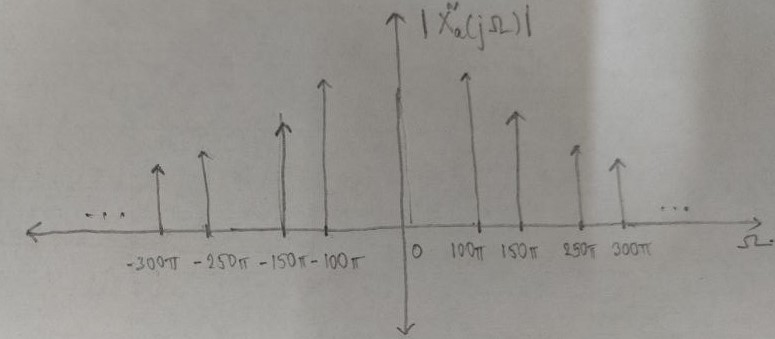 |X̃ₐ(jΩ)|
... ...
-300π -250π -150π -100π 0 100π 150π 250π 300π Ω